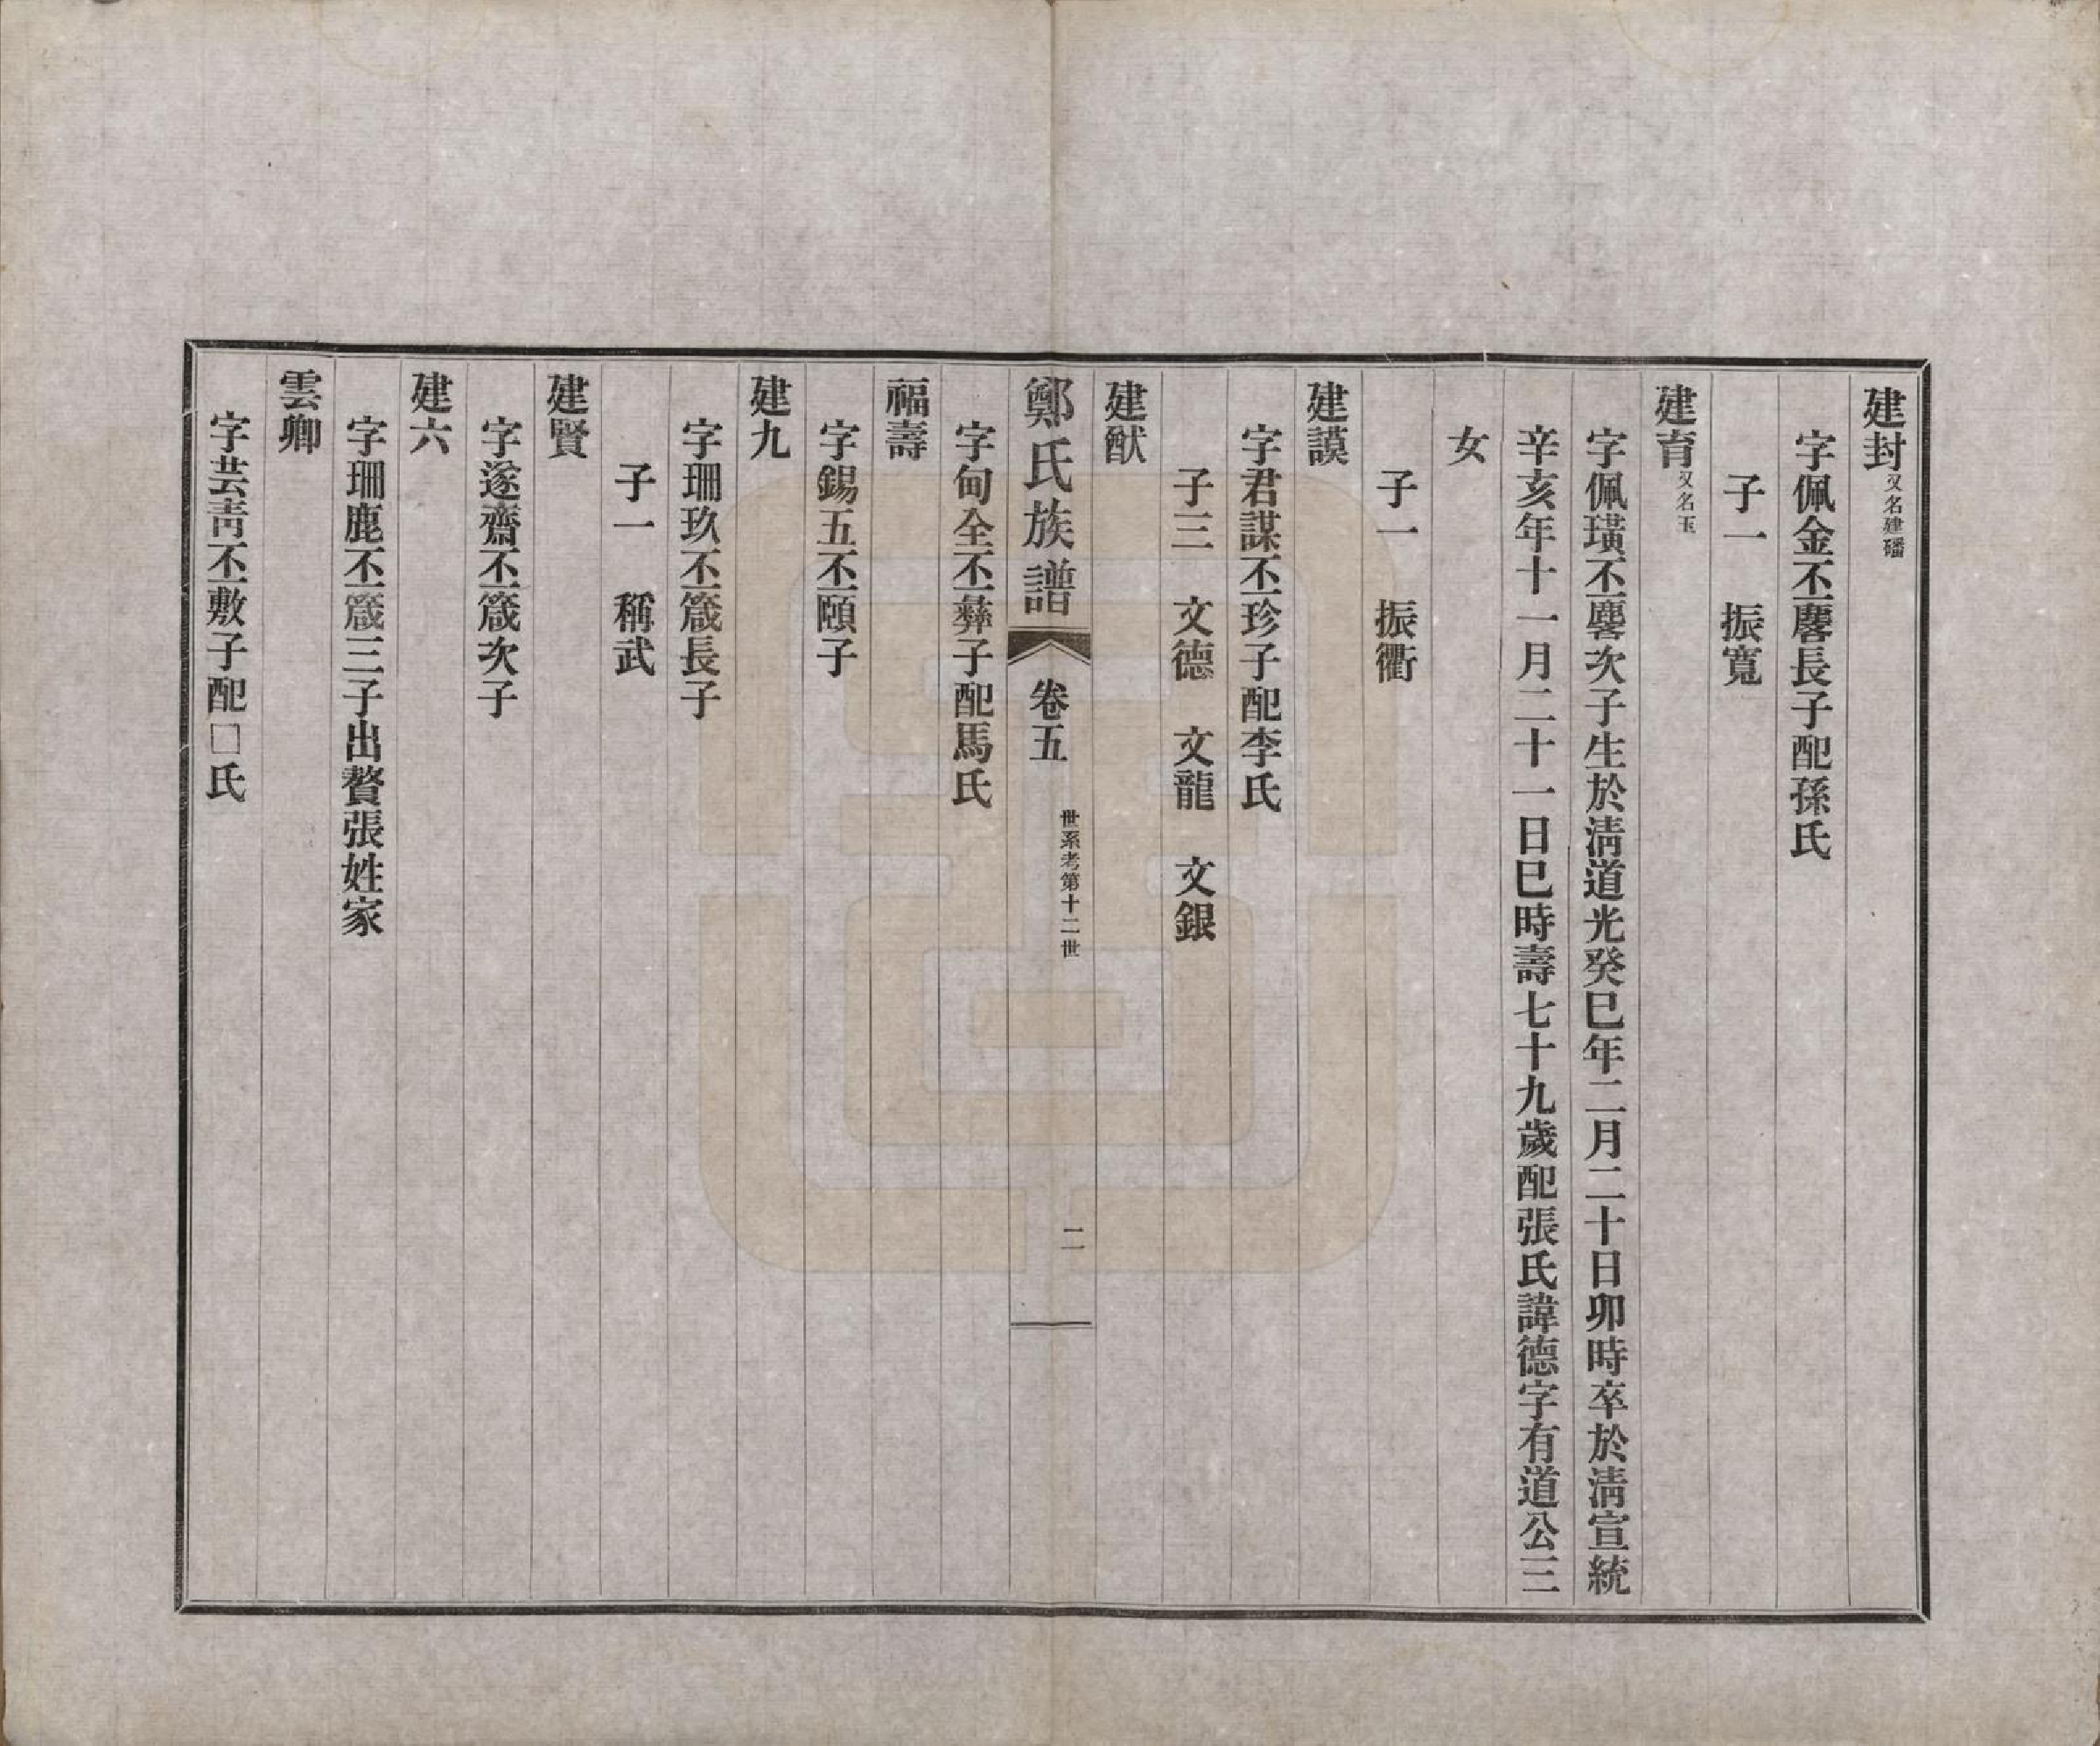 建封又名建磻
字佩金丕麐長子配孫氏
子一　振寬
建育又名玉
字佩璜丕麐次子生於清道光癸巳年二月二十日卯時卒於清宣統
辛亥年十一月二十一日巳時壽七十九歲配張氏諱德字有道公三
女
子一　振衢
建謨
字君謀丕珍子配李氏
子三　文德　文龍　文銀
建猷
鄭氏族譜　卷五　世系考第十二世　二
字甸全丕彝子配馬氏
福壽
字錫五丕頤子
建九
字珊玖丕箴長子
子一　稱武
建賢
字遂齋丕箴次子
建六
字珊鹿丕箴三子出贅張姓家
雲卿
字芸青丕敷子配□氏